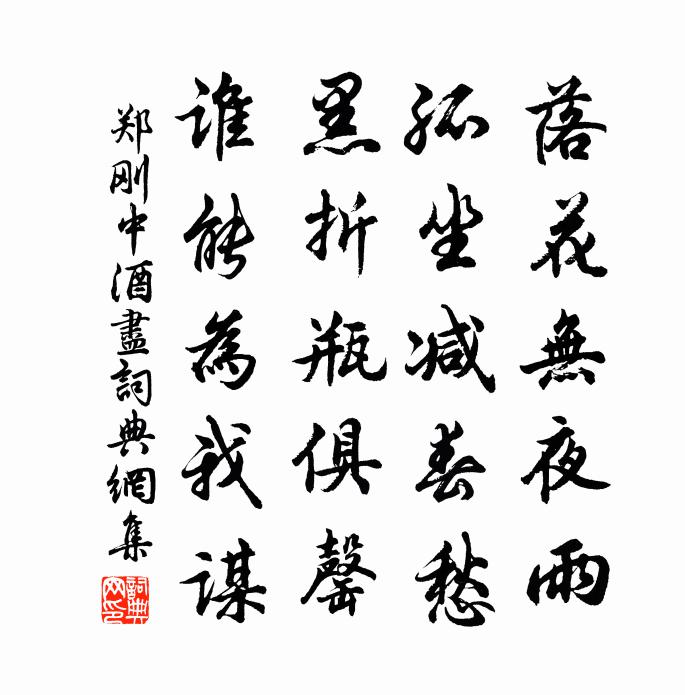 落花無夜雨
孤坐减春愁
黑折瓶俱罄
誰能為我謀
郑刚中酒盡詞典網集
詞典網印